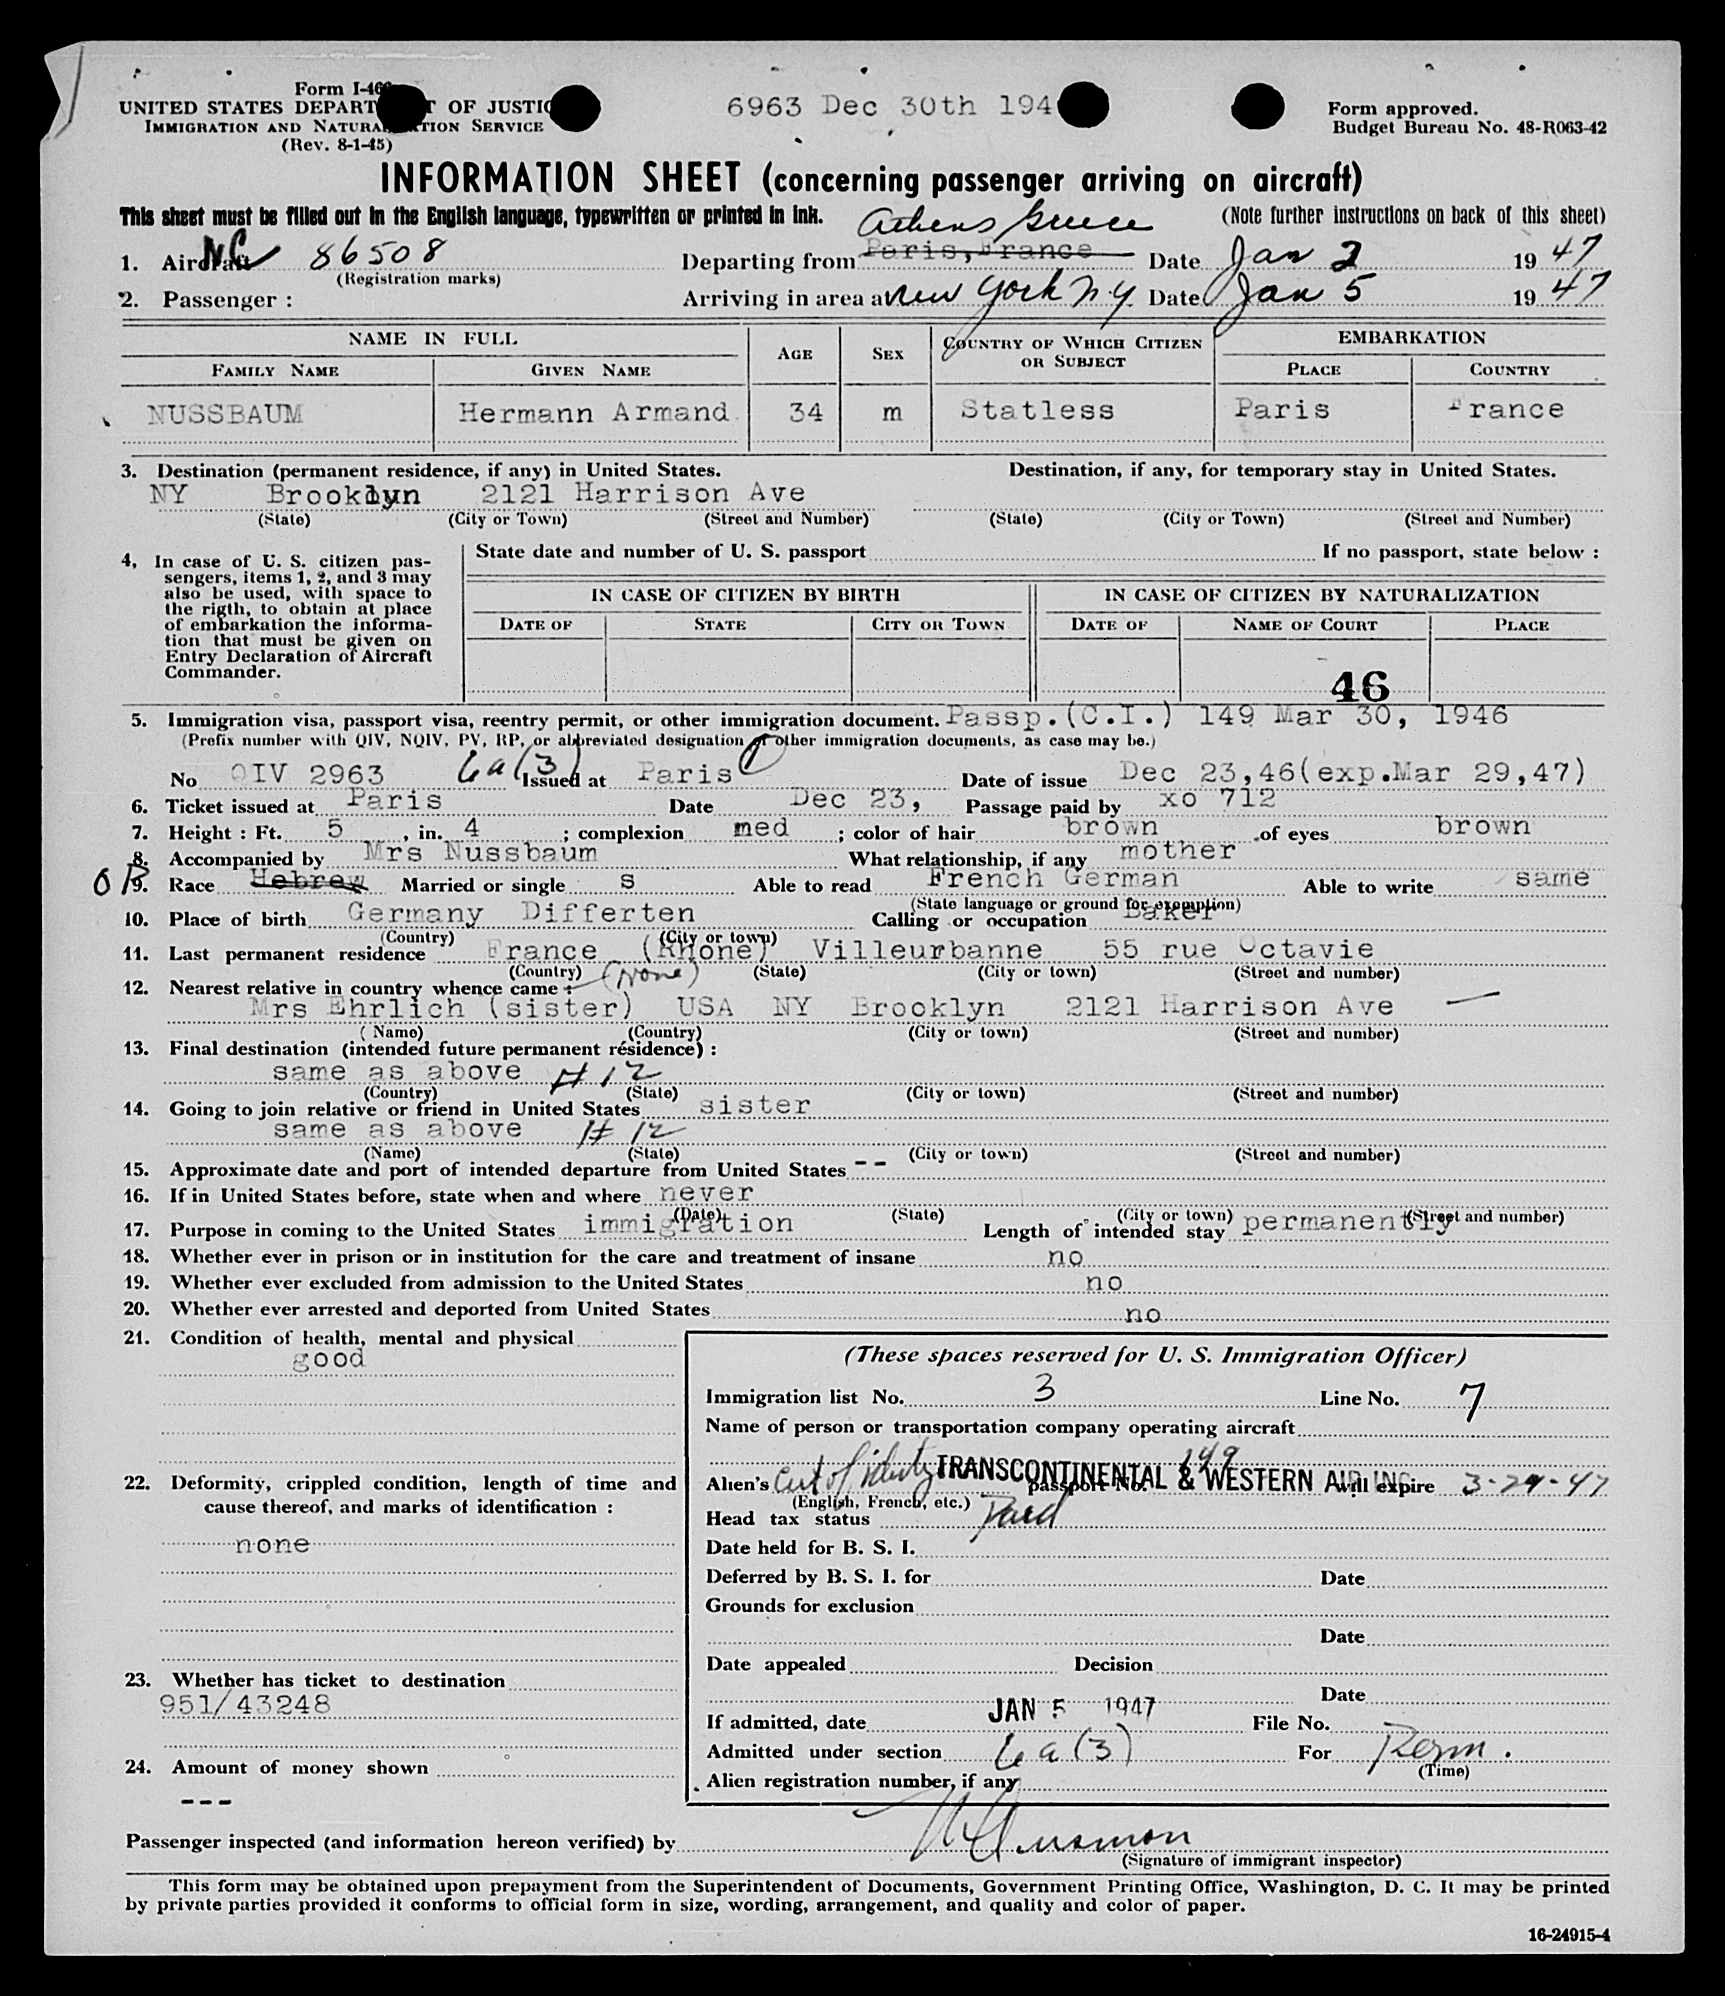 Form I-46
UNITED STATES DEPART T OF JUSTIC
IMMIGRATION AND NATURA TION SERVICE
(Rev. 8-1-45)
6963 Dec 30th 194
Form approved.
Budget Bureau No. 48-R063-42
INFORMATION SHEET (concerning passenger arriving on aircraft)
This sheet must be filled out in the English language, typewritten or printed in ink.
(Note further instructions on back of this sheet)
Athens Greece
1. Aircraft NC 86508 Departing from Paris, France Date Jan 2 19 47
(Registration marks)
2. Passenger : Arriving in area a New York N.Y. Date Jan 5 19 47
NAME IN FULL AGE SEX COUNTRY OF WHICH CITIZEN OR SUBJECT EMBARKATION
FAMILY NAME GIVEN NAME PLACE COUNTRY
NUSSBAUM Hermann Armand 34 m Statless Paris France
3. Destination (permanent residence, if any) in United States. Destination, if any, for temporary stay in United States.
NY Brooklyn 2121 Harrison Ave
(State) (City or Town) (Street and Number) (State) (City or Town) (Street and Number)
4, In case of U. S. citizen pas-
sengers, items 1, 2, and 3 may
also be used, with space to
the rigth, to obtain at place
of embarkation the informa-
tion that must be given on
Entry Declaration of Aircraft
Commander.
State date and number of U. S. passport If no passport, state below :
IN CASE OF CITIZEN BY BIRTH IN CASE OF CITIZEN BY NATURALIZATION
DATE OF STATE CITY OR TOWN DATE OF NAME OF COURT PLACE
46
5. Immigration visa, passport visa, reentry permit, or other immigration document. Passp.(C.I.) 149 Mar 30, 1946
(Prefix number with QIV, NQIV, PV, RP, or abbreviated designation of other immigration documents, as case may be.)
No QIV 2963 6a(3) Issued at Paris Date of issue Dec 23,46(exp.Mar 29,47)
6. Ticket issued at Paris Date Dec 23, Passage paid by xo 712
7. Height : Ft. 5 , in. 4 ; complexion med ; color of hair brown of eyes brown
8. Accompanied by Mrs Nussbaum What relationship, if any mother
9. Race Hebrew Married or single s Able to read French German Able to write same
(State language or ground for exemption)
10. Place of birth Germany Differten Calling or occupation Baker
(Country) (City or town)
11. Last permanent residence France (Rhone) Villeurbanne 55 rue Octavie
(Country) (State) (City or town) (Street and number)
12. Nearest relative in country whence came : (None)
Mrs Ehrlich (sister) USA NY Brooklyn 2121 Harrison Ave
(Name) (Country) (City or town) (Street and number)
13. Final destination (intended future permanent résidence) :
same as above # 12
(Country) (State) (City or town) (Street and number)
14. Going to join relative or friend in United States sister
same as above # 12
(Name) (State) (City or town) (Street and number)
15. Approximate date and port of intended departure from United States --
16. If in United States before, state when and where never
(Date) (State) (City or town) (Street and number)
17. Purpose in coming to the United States immigration Length of intended stay permanently
18. Whether ever in prison or in institution for the care and treatment of insane no
19. Whether ever excluded from admission to the United States no
20. Whether ever arrested and deported from United States no
21. Condition of health, mental and physical
good
22. Deformity, crippled condition, length of time and
cause thereof, and marks of identification :
none
23. Whether has ticket to destination
951/43248
24. Amount of money shown
---
(These spaces reserved for U. S. Immigration Officer)
Immigration list No. 3 Line No. 7
Name of person or transportation company operating aircraft
TRANSCONTINENTAL & WESTERN AIR INC.
Alien's Cert of identity passport No. 149 will expire 3-29-47
(English, French, etc.)
Head tax status Paid
Date held for B. S. I.
Deferred by B. S. I. for Date
Grounds for exclusion
Date
Date appealed Decision
Date
If admitted, date JAN 5 1947 File No.
Admitted under section 6a(3) For Perm.
(Time)
Alien registration number, if any
Passenger inspected (and information hereon verified) by
(Signature of immigrant inspector)
This form may be obtained upon prepayment from the Superintendent of Documents, Government Printing Office, Washington, D. C. It may be printed
by private parties provided it conforms to official form in size, wording, arrangement, and quality and color of paper.
16-24915-4